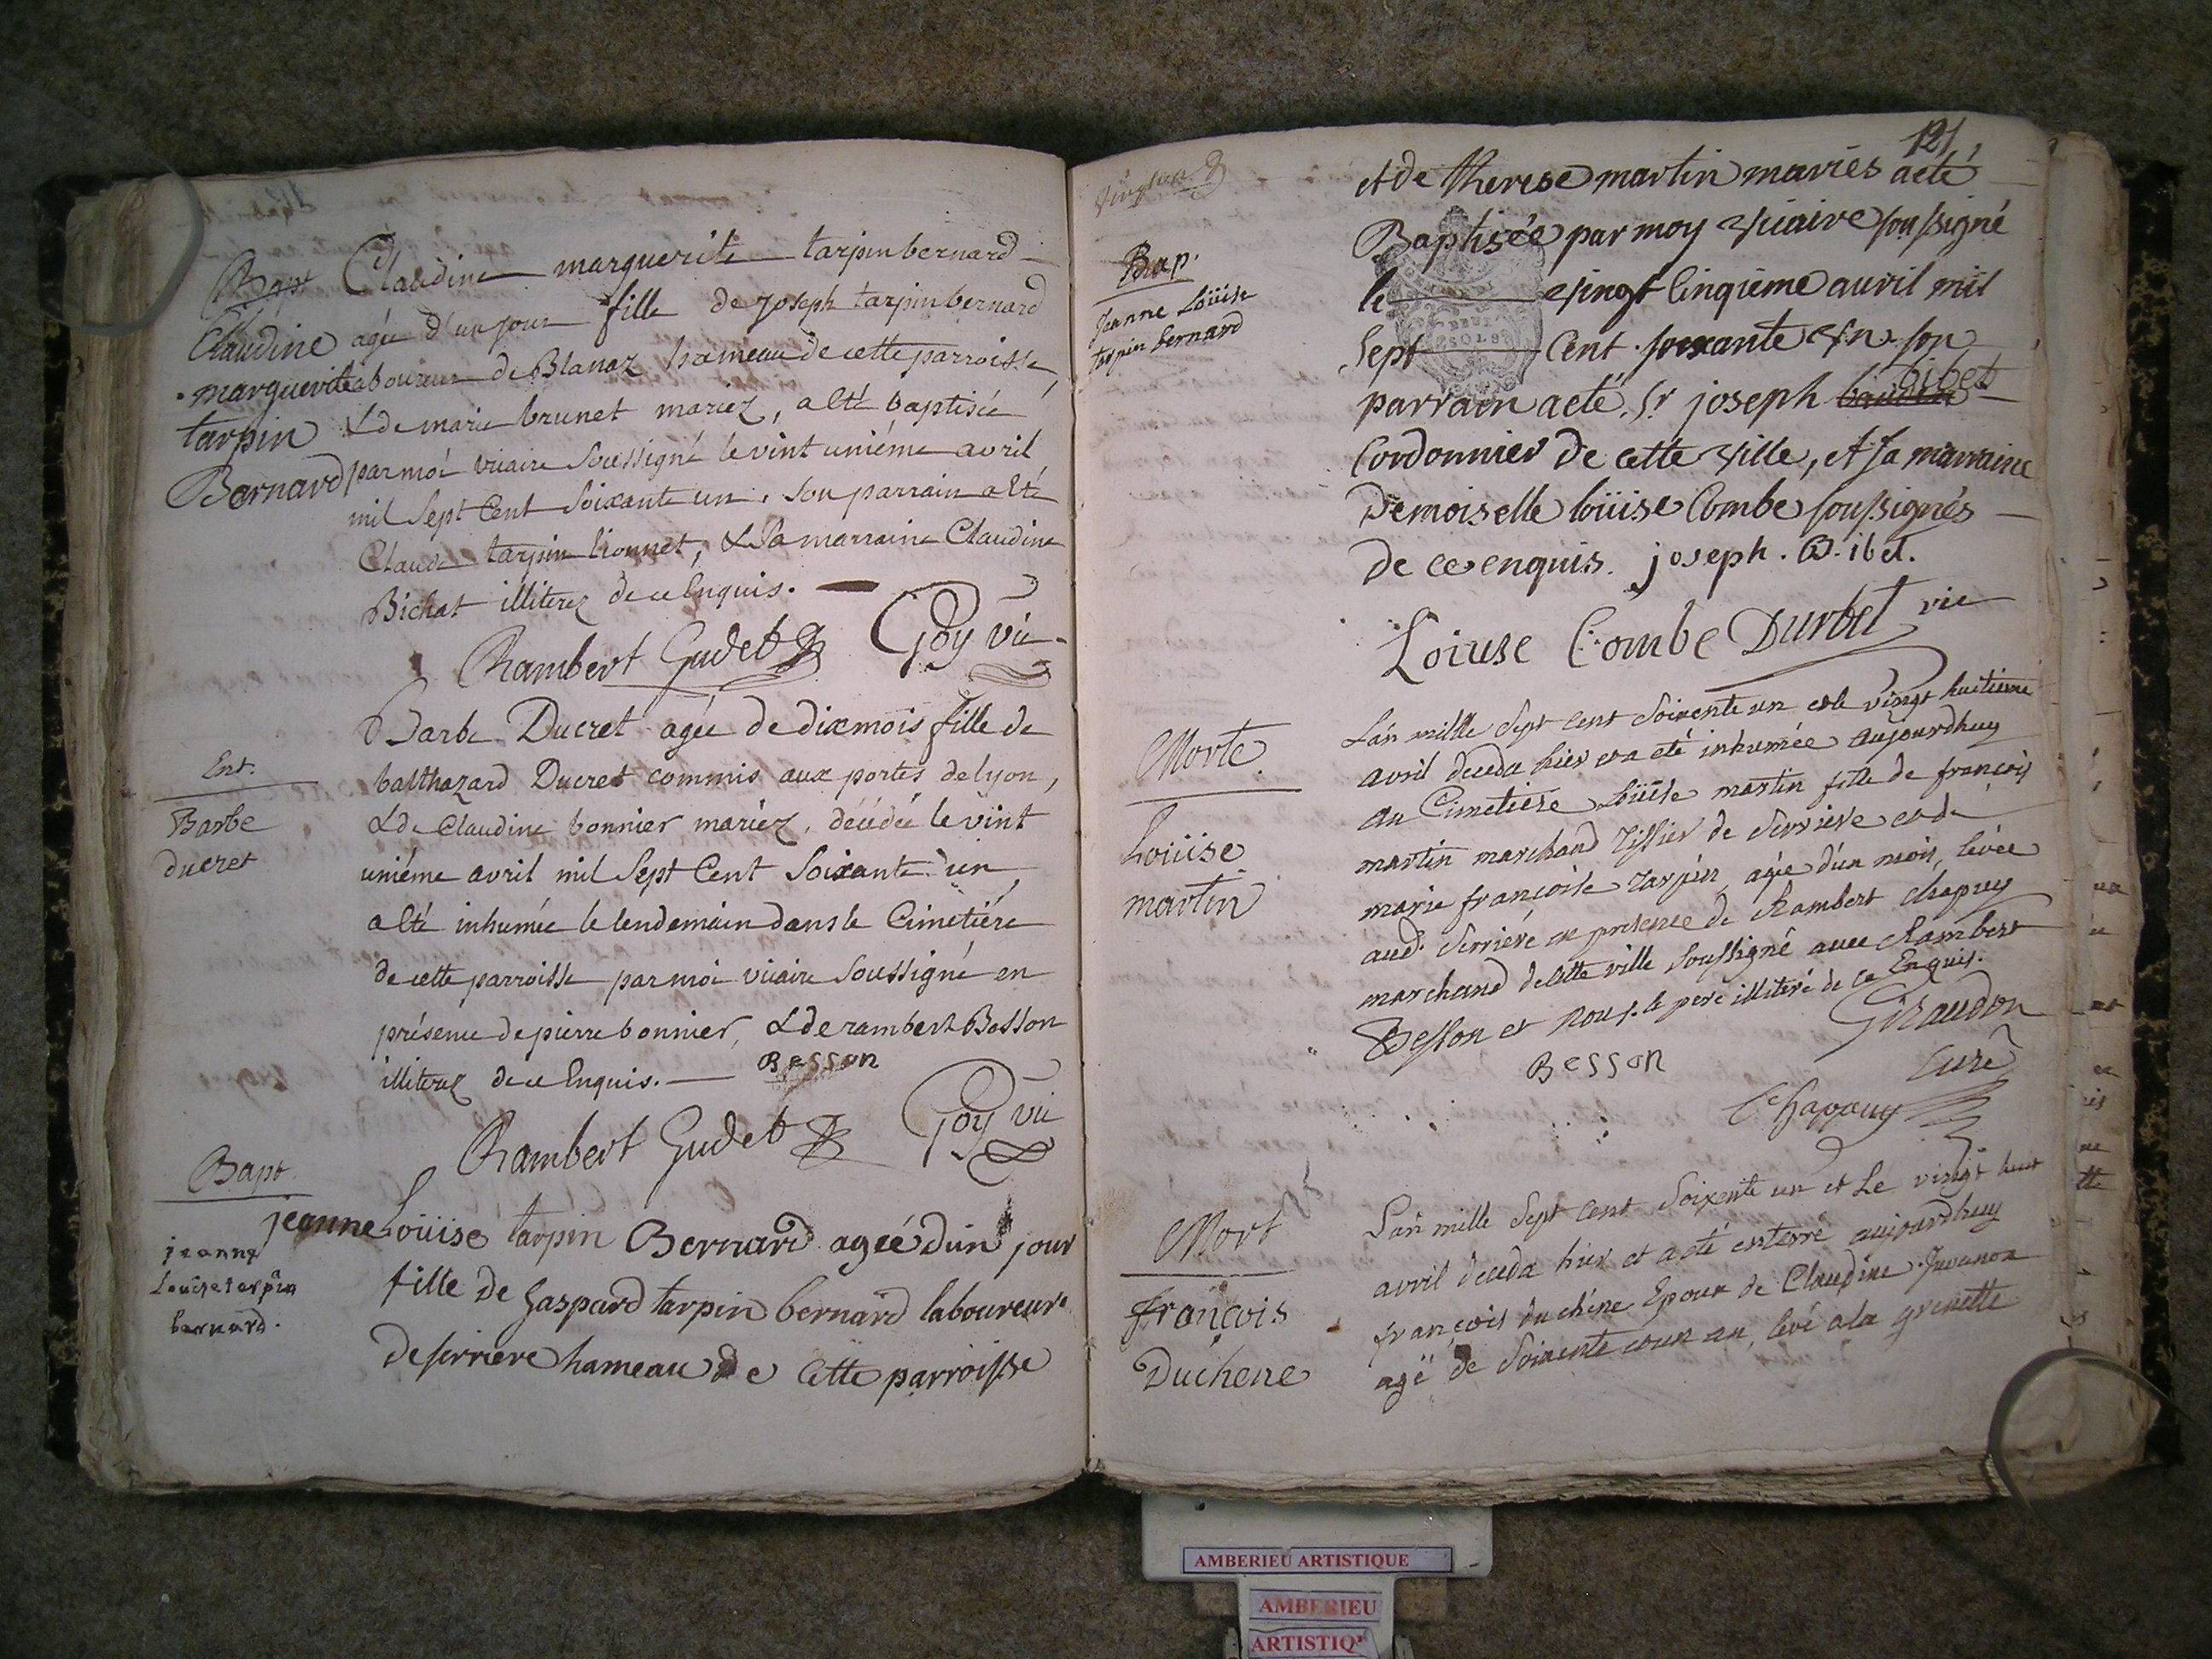 Bapt
Claudine
marguerite
tarpin
Bernard
Claudine marguerite tarpin bernard
agée d'un jour fille de joseph tarpin bernard
laboureur de Blanaz hameau de cette parroisse,
& de marie brunet mariez, a êté baptisée
par moi vicaire soussigné le vint uniéme avril
mil sept cent soixante un, son parrain a êté
Claude tarpin lionnet, & sa marraine Claudine
Bichat illiterez de ce Enquis.
Rambert Gudet Goy vic
Ent.
Barbe
ducret
Barbe Ducret agée de dix mois fille de
balthazard Ducret commis aux portes de lyon,
& de Claudine bonnier mariez, décédée le vint
uniéme avril mil sept cent soixante un,
a êté inhumée le lendemain dans le Cimetiére
de cette parroisse par moi vicaire soussigné en
présence de pierre bonnier, & de rambert Besson
illiterez de ce Enquis. Besson
Rambert Gudet Goy vic
Bapt.
jeanne
Louise tarpin
bernard.
jeanne Loüise tarpin Bernard agée d'un jour
fille de gaspard tarpin bernard laboureur
de serriere hameau de Cette parroisse
121
Bap.
Jeanne Loüise
tarpin bernard
et de therese martin mariés a eté
Baptisée par moy vicaire soussigné
le vingt cinquieme auril mil
sept Cent soixante vn son
parrain a eté Sr joseph baudin bibet
Cordonnier de cette ville, et sa marraine
Demoiselle loüise Combe soussignés
de ce enquis. joseph. B.ibet.
Loiuse Combe Durbet vic
Morte
Loüise
martin
L'an mille sept cent soixente un et le vingt huitieme
avril deceda hier et a eté inhumée aujourdhuy
au Cimetiere Loüise martin fille de françois
martin marchand tissier de serriere et de
marie françoise tarpin, agée d'un mois, levée
aud. serriere en presence de Rambert chapuy
marchand de cette ville soussigné avec Rambert
Besson et nous. le pere illiteré de ce Enquis.
Besson Giraudon
Curé
Chapuy
Mort
françois
Duchene
L'an mille sept cent soixente un et Le vingt huit
avril deceda hier et a eté enterré aujourdhuy
françois duchêne Epoux de Claudine Juvanon
agé de soixente et un an, levé a la grenette
AMBERIEU ARTISTIQUE
AMBERIEU
ARTISTIQ